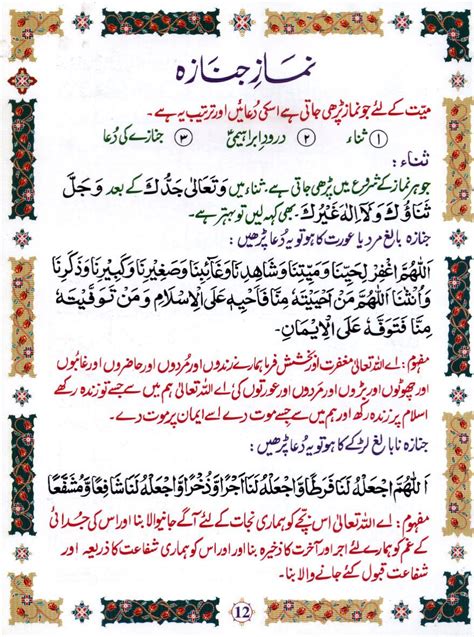 نمازِ جنازہ
میّت کے لئے جو نماز پڑھی جاتی ہے اسکی دُعائیں اور ترتیب یہ ہے۔
① ثناء ② درودِ ابراہیمیؑ ③ جنازے کی دُعا
ثناء:
جو ہر نماز کے شروع میں پڑھی جاتی ہے۔ ثناء میں وَتَعَالٰی جَدُّكَ کے بعد وَجَلَّ
ثَنَاؤُكَ وَلَآ اِلٰهَ غَيْرُكَ۔ بھی کہہ لیں تو بہتر ہے۔
جنازہ بالغ مرد یا عورت کا ہو تو یہ دُعا پڑھیں:
اَللّٰهُمَّ اغْفِرْ لِحَيِّنَا وَمَيِّتِنَا وَشَاهِدِنَا وَغَآئِبِنَا وَصَغِيْرِنَا وَكَبِيْرِنَا وَذَكَرِنَا
وَاُنْثٰنَا اَللّٰهُمَّ مَنْ اَحْيَيْتَهٗ مِنَّا فَاَحْيِهٖ عَلَى الْاِسْلَامِ وَ مَنْ تَوَفَّيْتَهٗ
مِنَّا فَتَوَفَّهٗ عَلَى الْاِيْمَانِ۔
مفہوم: اے اللہ تعالیٰ مغفرت اور بخشش فرما ہمارے زندوں اور مُردوں اور حاضروں اور غائبوں
اور چھوٹوں اور بڑوں اور مَردوں اور عورتوں کی اے اللہ تعالیٰ ہم میں سے جسے تو زندہ رکھے
اسلام پر زندہ رکھ اور ہم میں سے جسے موت دے اسے ایمان پر موت دے۔
جنازہ نابالغ لڑکے کا ہو تو یہ دُعا پڑھیں:
اَللّٰهُمَّ اجْعَلْهُ لَنَا فَرَطًا وَّاجْعَلْهُ لَنَا اَجْرًا وَّذُخْرًا وَّاجْعَلْهُ لَنَا شَافِعًا وَّمُشَفَّعًا
مفہوم: اے اللہ تعالیٰ اس بچّے کو ہماری نجات کے لئے آگے جانیوالا بنا اور اس کی جُدائی
کے غم کو ہمارے لئے اجر اور آخرت کا ذخیرہ بنا اور اور اس کو ہماری شفاعت کا ذریعہ اور
شفاعت قبول کئے جانے والا بنا۔
12